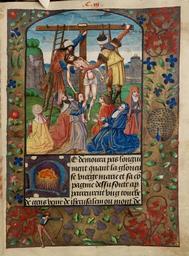 e demoura pas longue
ment quant la glorieu
se vierge marie et sa co
pagnie dessusdicte ap
parceurent ung
de gens de iherusalem ou mont de